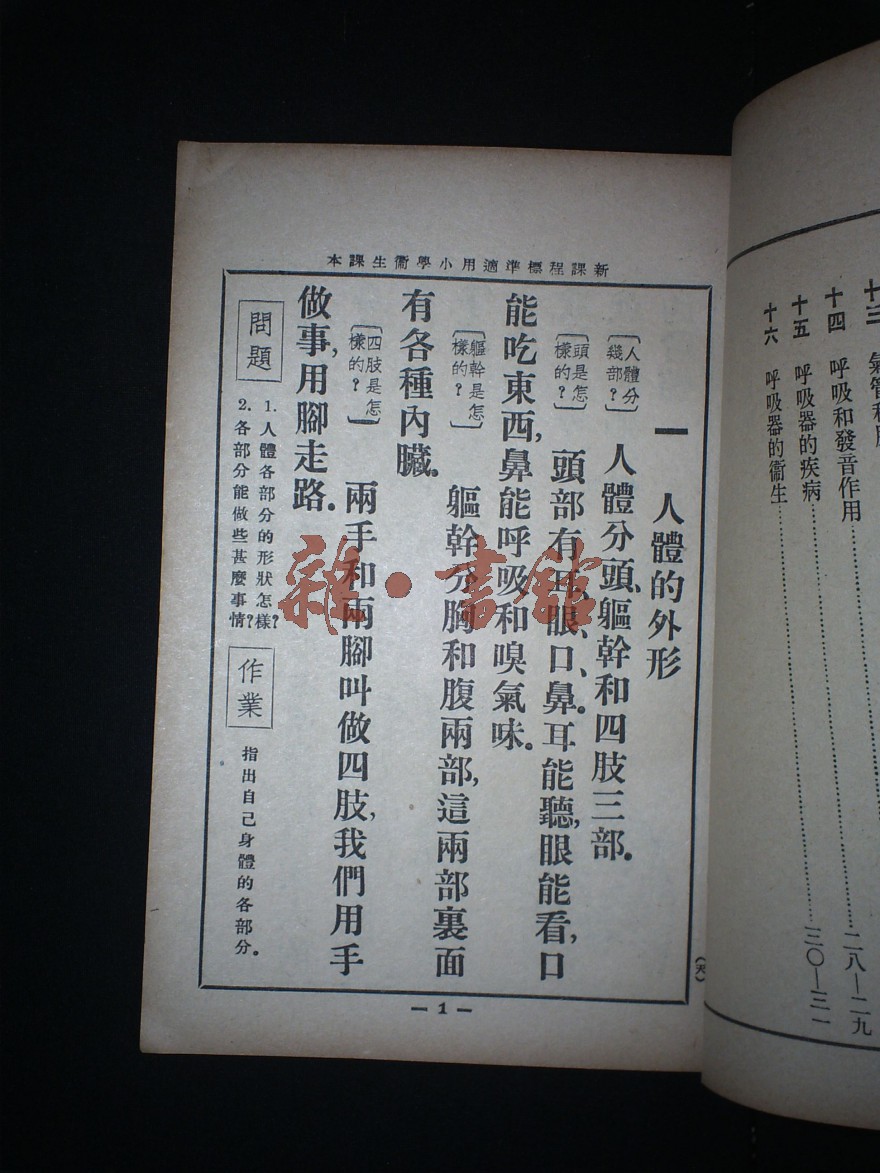 新課程標準適用小學衞生課本
一 人體的外形
〔人體分
幾部？〕
人體分頭、軀幹和四肢三部。
〔頭是怎
樣的？〕
頭部有耳、眼、口、鼻。耳能聽，眼能看，口
能吃東西，鼻能呼吸和嗅氣味。
〔軀幹是怎
樣的？〕
軀幹分胸和腹兩部，這兩部裏面
有各種內臟。
〔四肢是怎
樣的？〕
兩手和兩腳叫做四肢，我們用手
做事，用腳走路。
問題
1. 人體各部分的形狀怎樣？
2. 各部分能做些甚麼事情？
作業
指出自己身體的各部分。
— 1 —
雜·書館
十三
十四 呼吸和發音作用……二八—二九
十五 呼吸器的疾病……三〇—三一
十六 呼吸器的衞生